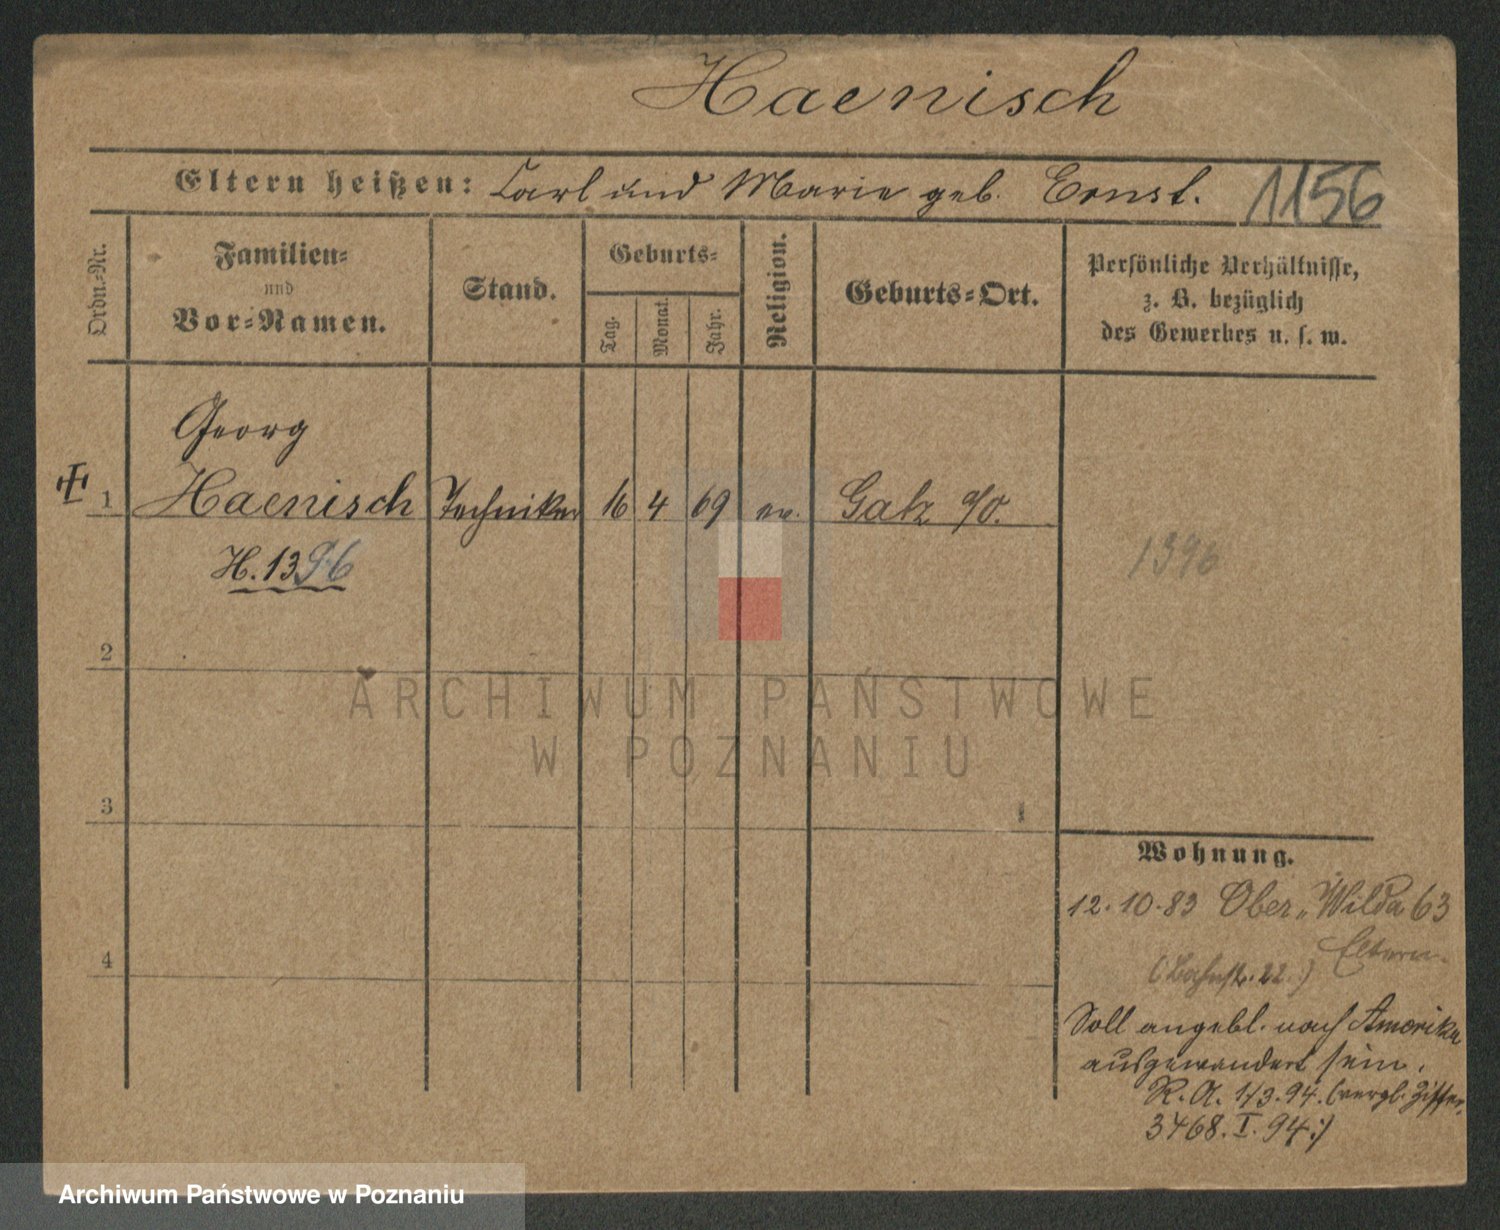 Haenisch
Eltern heißen: Carl und Marie geb. Ernst.
1156
Ordn.-Nr.
Familien-
und
Vor-Namen.
Stand.
Geburts-
Tag.
Monat.
Jahr.
Religion.
Geburts-Ort.
Persönliche Verhältnisse,
z. B. bezüglich
des Gewerbes u. s. w.
Georg
1 Haenisch Techniker 16 4 69 ev. Gatz a/O.
H. 1396
1396
2
ARCHIWUM PAŃSTWOWE
W POZNANIU
3
Wohnung.
12.10.83 Ober-Wilda 63
Eltern.
4
(Bahnstr. 22.)
Soll angebl. nach Amerika
ausgewandert sein.
R. A. 1/3.94. (vergl. Ziffer
3468. I. 94.)
Archiwum Państwowe w Poznaniu